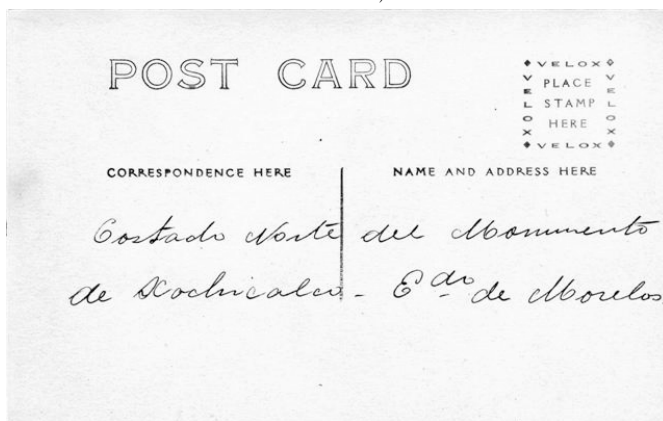 POST CARD
VELOX
VELOX
PLACE
STAMP
HERE
VELOX
VELOX
CORRESPONDENCE HERE
NAME AND ADDRESS HERE
Costado Norte del Monumento
de Xochicalco - Edo de Morelos